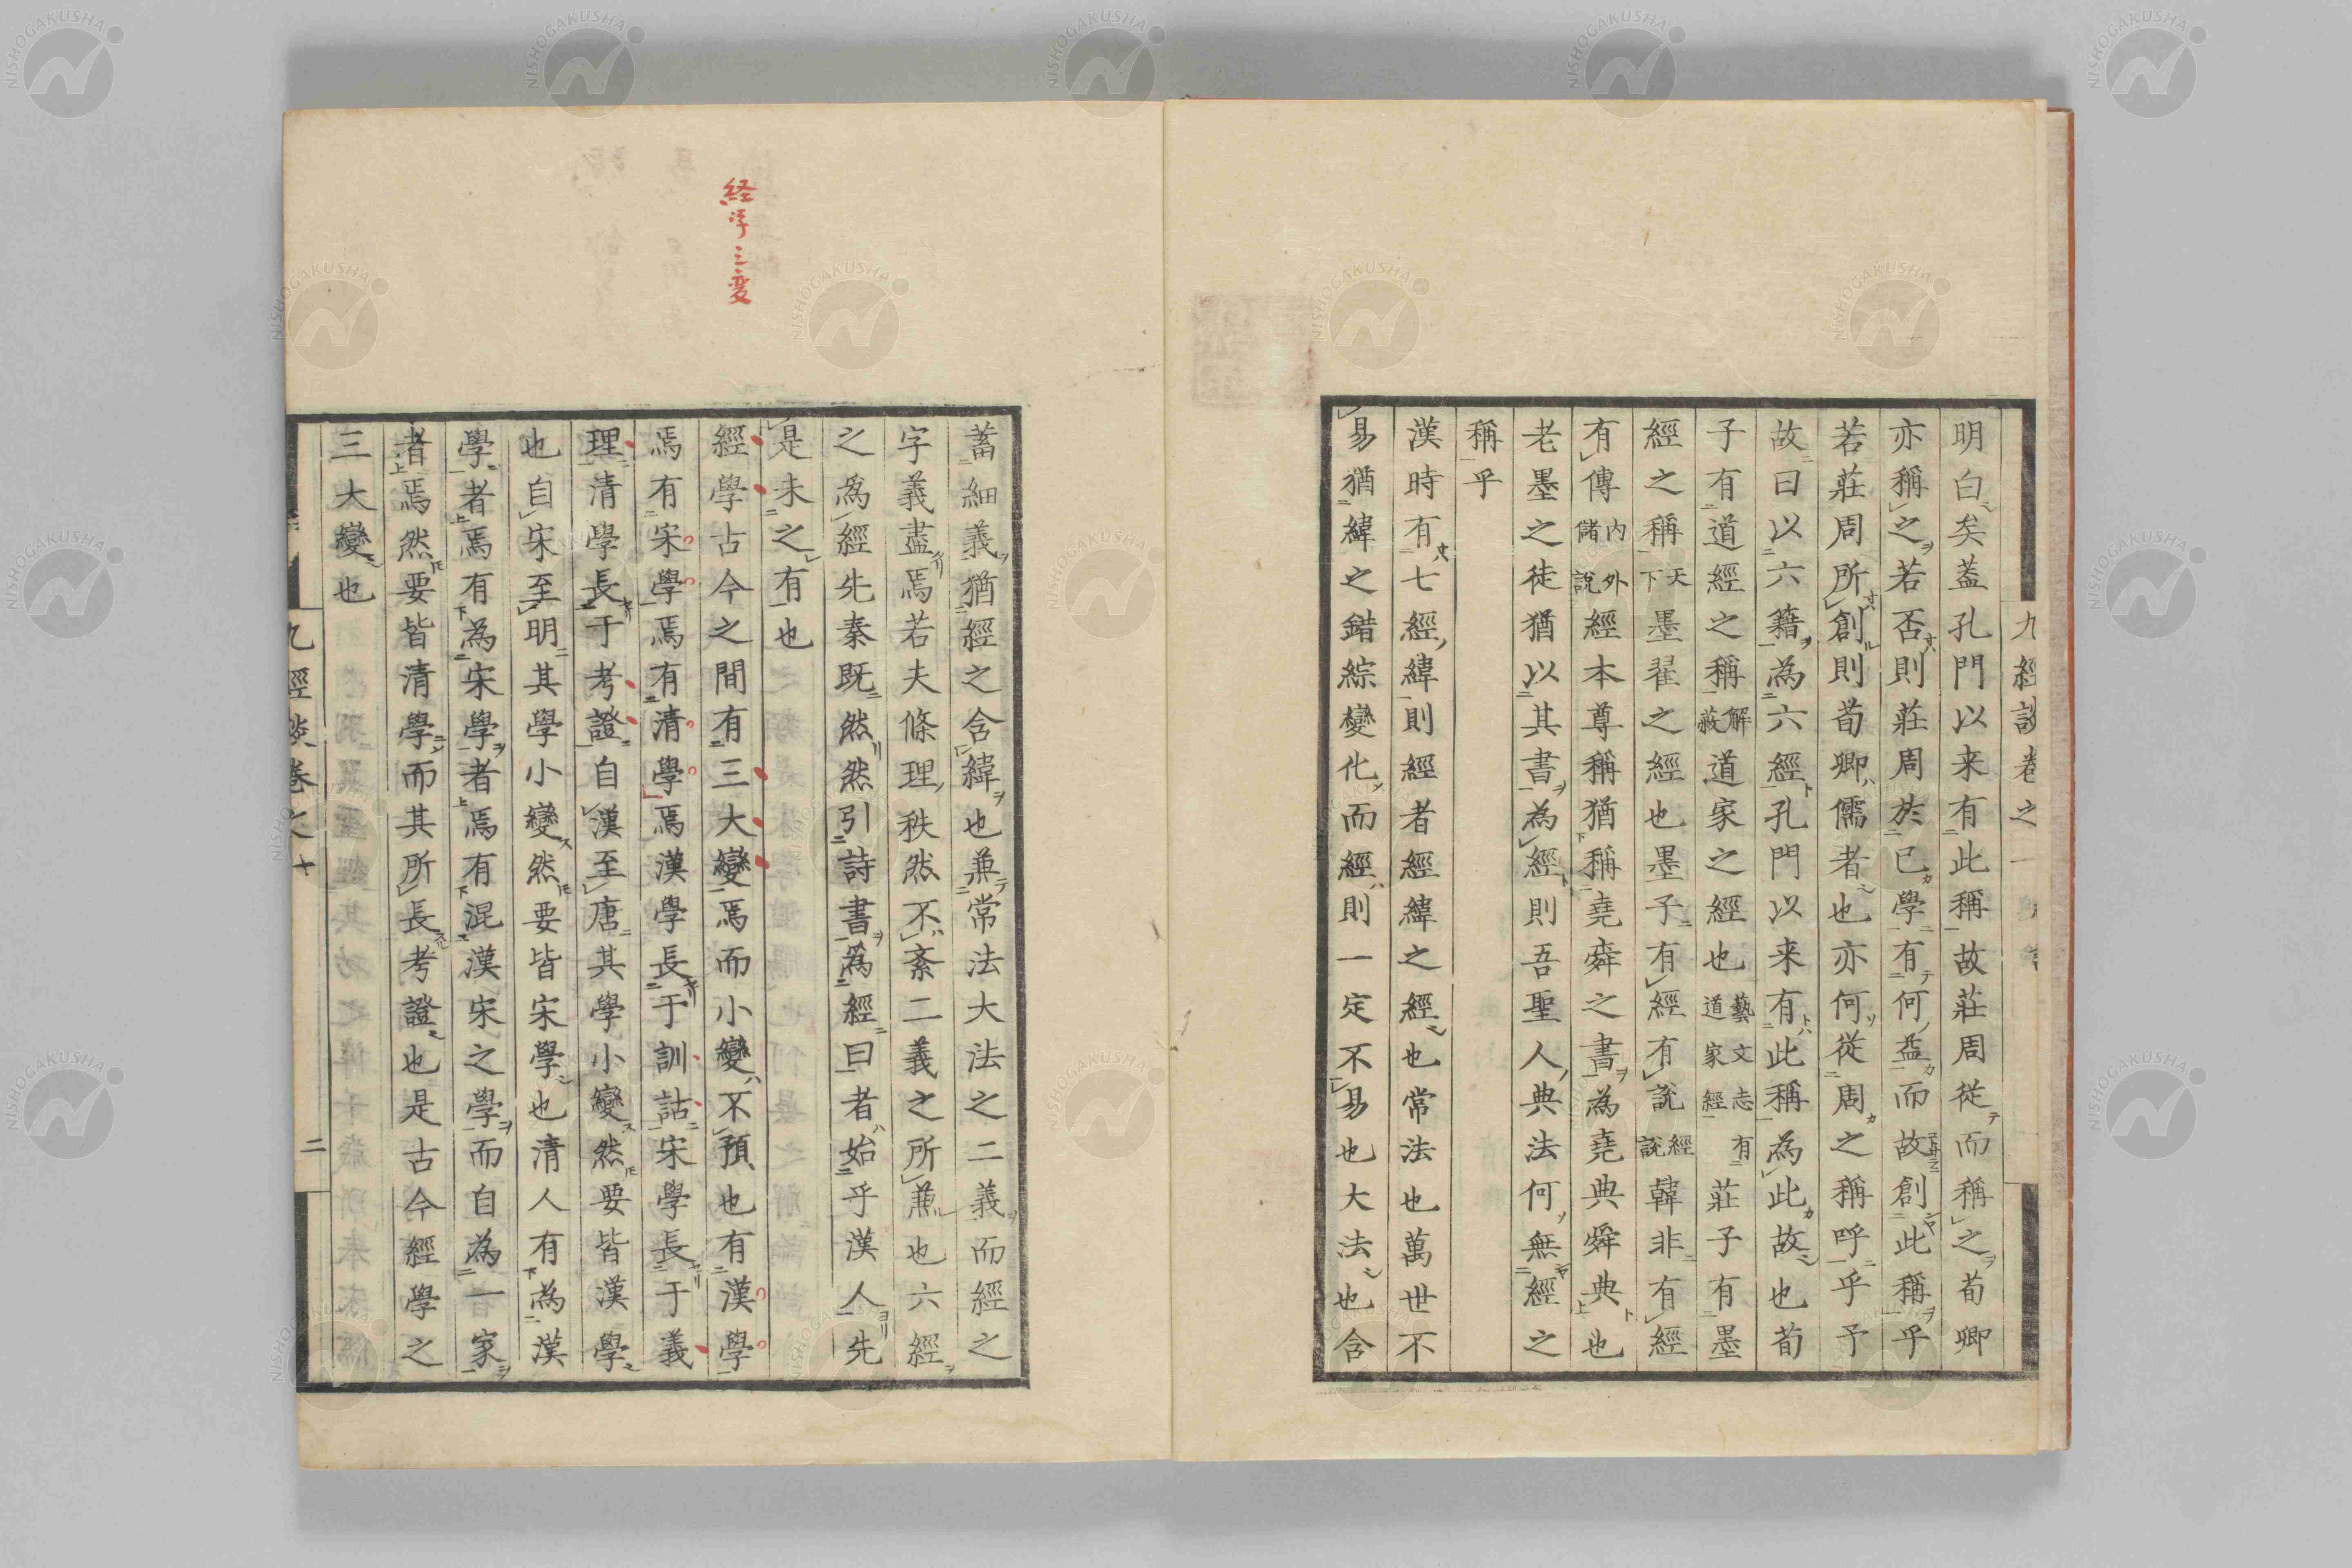 九經談卷之一
明白矣蓋孔門以来有此稱故莊周從而稱之荀卿
亦稱之若否則莊周於己學有何益而故創此稱乎
若莊周所創則荀卿儒者也亦何從周之稱呼乎予
故曰以六籍為六經孔門以来有此稱為此故也荀
子有道經之稱解蔽道家之經也藝文志有道家經莊子有墨
經之稱天下墨翟之經也墨子有經有說經說韓非有經
有傳內外儲說經本尊稱猶稱堯舜之書為堯典舜典也
老墨之徒猶以其書為經則吾聖人典法何無經之
稱乎
漢時有七經緯則經者經緯之經也常法也萬世不
易猶緯之錯綜變化而經則一定不易也大法也含
蓄細義猶經之含緯也兼常法大法之二義而經之
字義盡焉若夫條理秩然不紊二義之所兼也六經
之為經先秦既然然引詩書為經曰者始乎漢人先
是未之有也
経学三変
經學古今之間有三大變焉而小變不預也有漢學
焉有宋學焉有清學焉漢學長于訓詁宋學長于義
理清學長于考證自漢至唐其學小變然要皆漢學
也自宋至明其學小變然要皆宋學也清人有為漢
學者焉有為宋學者焉有混漢宋之學而自為一家
者焉然要皆清學而其所長考證也是古今經學之
三大變也
九經談卷之一
二
NISHOGAKUSHA